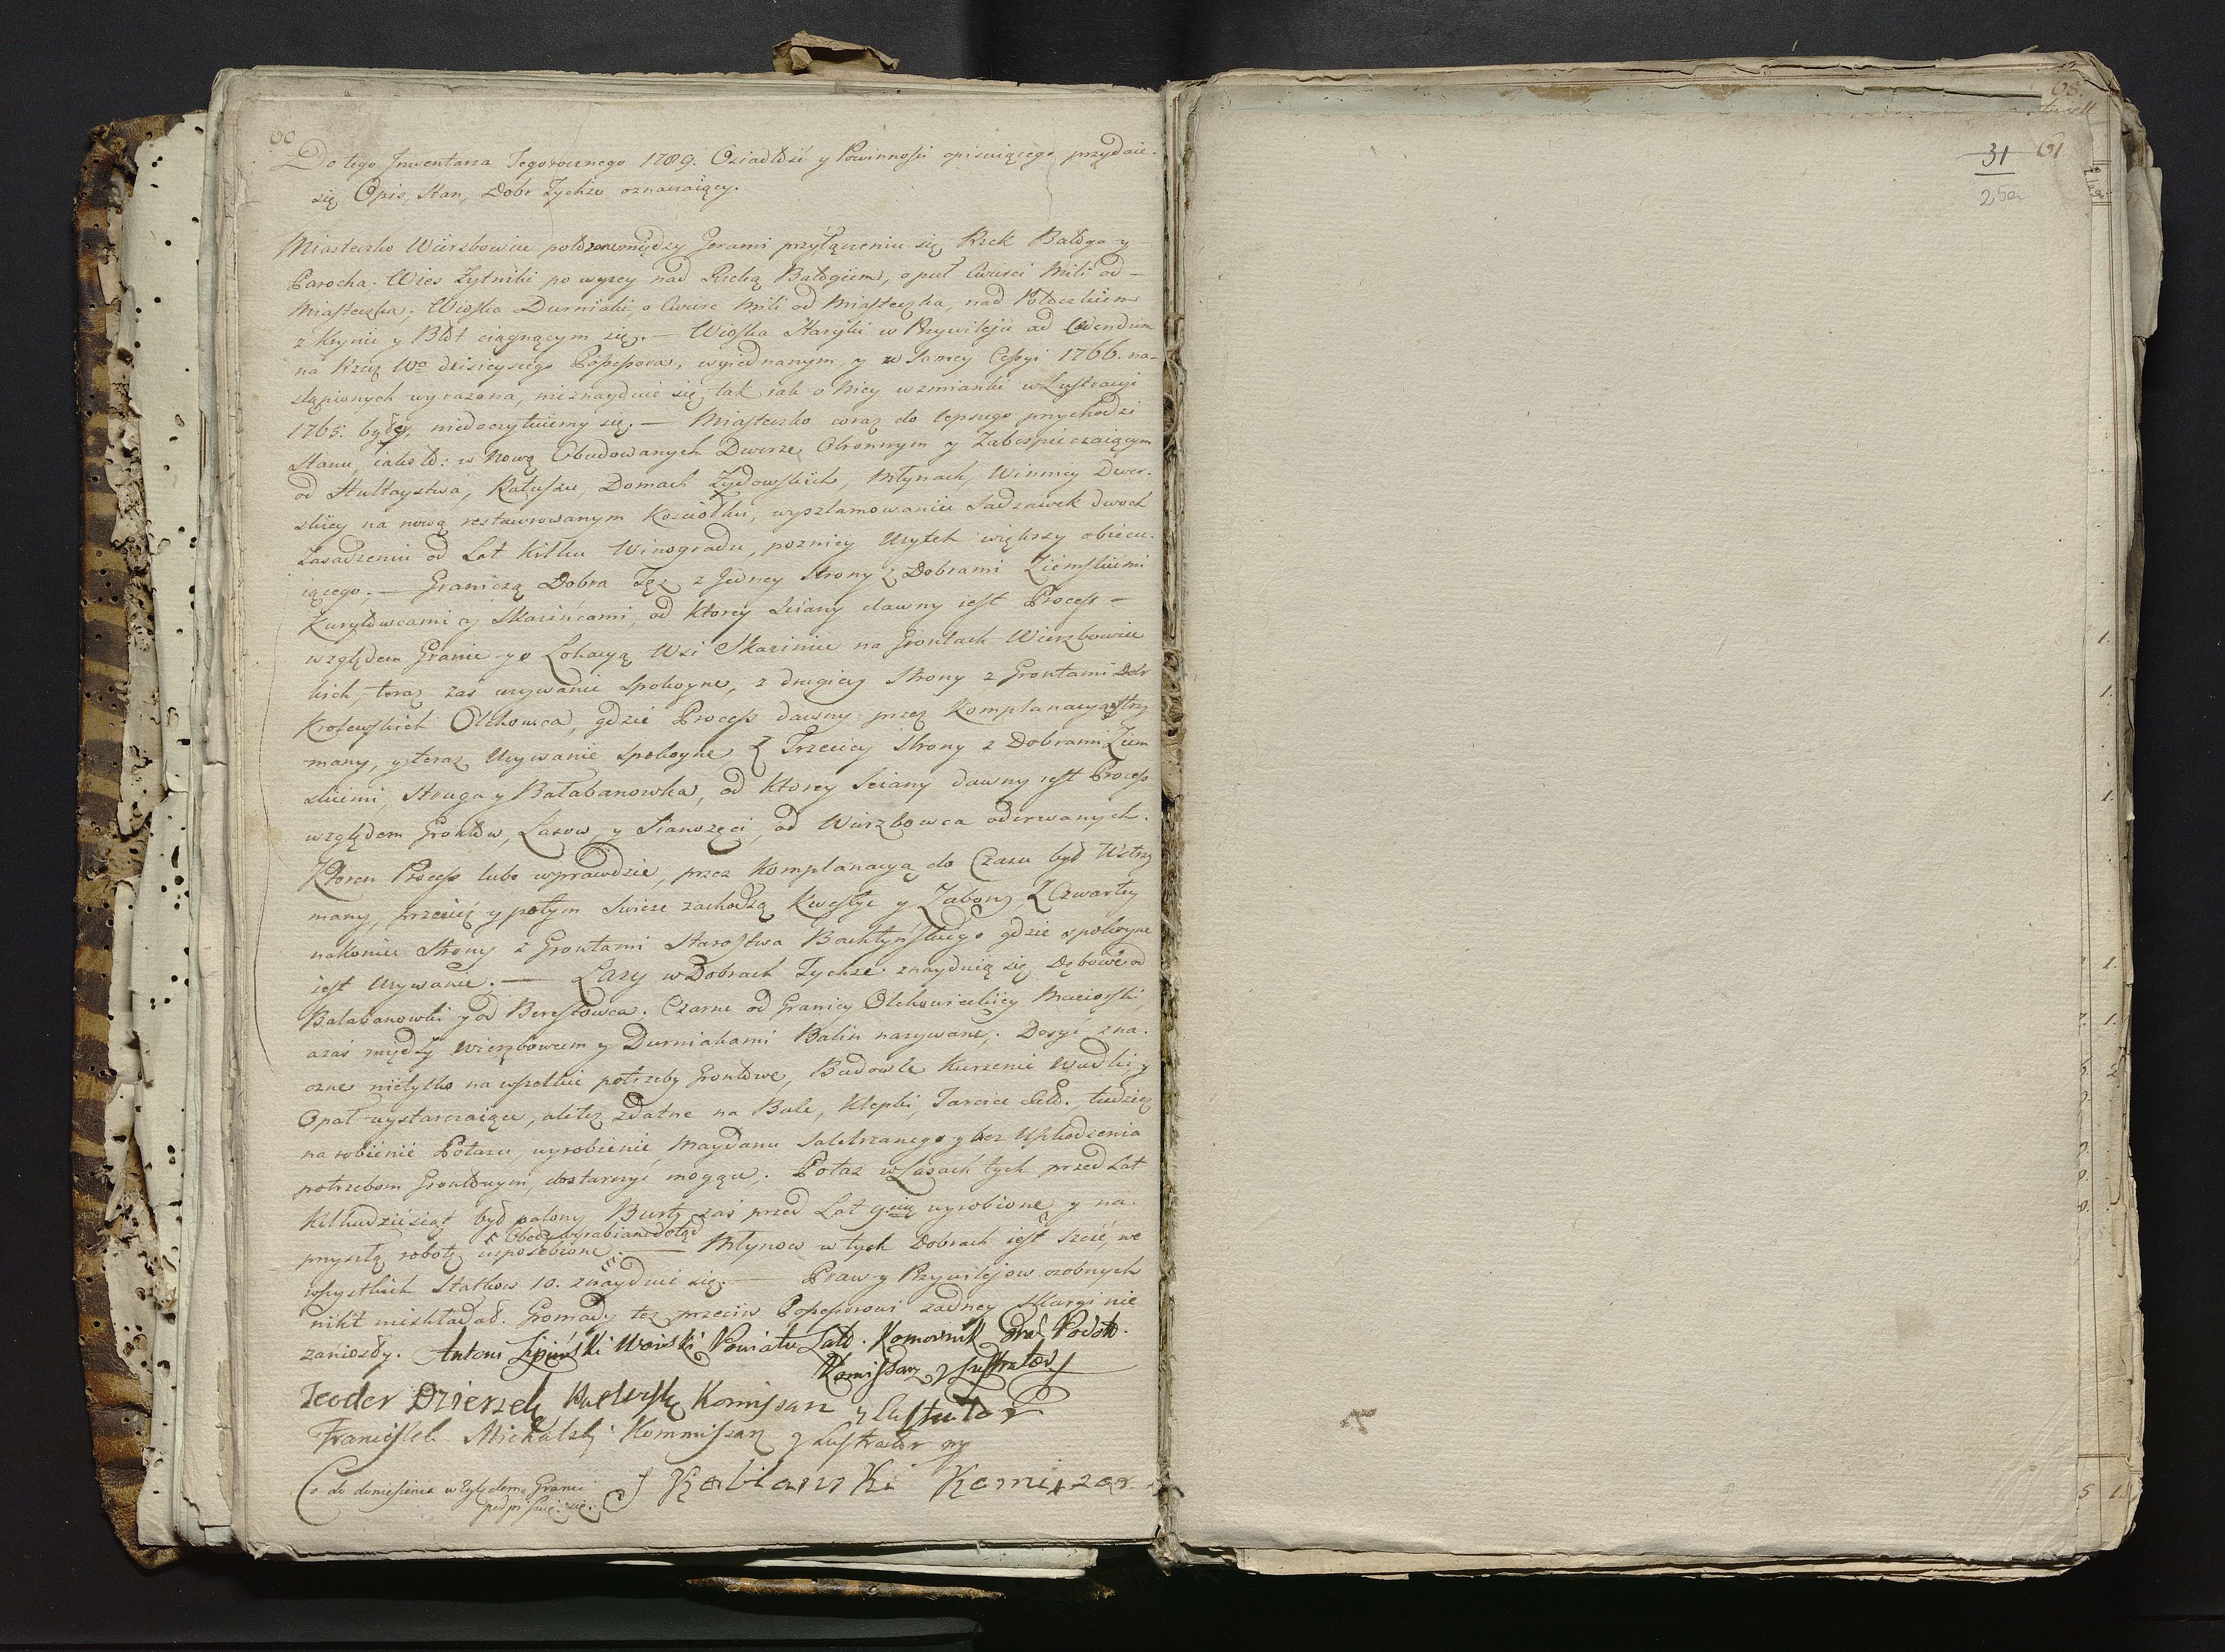 60
Do tego Inwentarza Tegorocznego 1789. Osiadłość y Powinności opisuiącego przydaie
się Opis, Stan, Dóbr Tychże oznaczaiący.
Miasteczko Wierzbowiec położone między Jerami przy łączeniu się Rzek Bałoga y
Parocha; Wieś Żytniki po wyżey nad Rzeką Bałogiem, o puł Cwierci Mili od
Miasteczka; Wioska Durniaki, o Cwierć Mili od Miasteczka, nad Potoczkiem
z Krynic y Błot ciągnącym się. — Wioska Staryki w Przywileju ad Cedendum
na Rzecz Wo dzisieyszego Possessora, wyiednanym, y w samey Cessyi 1766. na-
stąpionych wyrażona, nieznayduie się, tak iak o Niey wzmianki w Lustracyi
1765. byłey, niedoczytuiemy się. — Miasteczko coraz do lepszego przychodzi
Stanu, iako to: w Nowo Wbudowanych Dworze Obronnym y Zabespieczaiącym
od Hultaystwa, Ratuszu, Domach Żydowskich, Młynach, Winnicy Dwor-
skiey na nowo restaurowanym Kościołku, wyszlamowaniu Sadzawek dwoch
Zasadzeniu od Lat Kilku Winogradu, pozniey Użytek większy obiecu-
iącego. — Graniczą Dobra Też z Jedney Strony z Dobrami Ziemskiemi
Kuryłowcami y Skazińcami, od ktorey Sciany dawny iest Process
względem Granic y o Lokacyą Wsi Skaziniec na Grontach Wierzbowiec
kich, teraz zaś używanie spokoyne, z drugiey Strony z Grontami Dobr
Krolewskich Olchowca, gdzie Process dawny przez Komplanacyą wstrzy
many, y teraz Używanie spokoyne Z Trzeciey Strony z Dobrami Ziem
skiemi, Struga y Bałabanowka, od ktorey Sciany dawny iest Process
względem Grontow, Lasow, y Sianożęci, od Wierzbowca oderwanych.
Ktoren Process lubo wprawdzie, przez Komplanacyą do Czasu był Wstrzy
many, przecież y potym świeże zachodzą Kwestye y Zabory, Z Czwartey
nakoniec Strony z Grontami Starostwa Bachtyńskiego gdzie spokoyne
iest Używanie. — Lasy w Dobrach Tychże znayduią się Dębowe od
Bałabanowki y od Berestowca; Czarne od Granicy Olchowieckiey Macioski,
a zaś między Wierzbowcem y Durniakami Balin nazywane; Dosyć zna-
czne nietylko na wszelkie potrzeby Grontowe, Budowle Kurzenie Wodki y
Opał wystarczaiące, ale też zdatne na Bale, Klepki, Tarcice etc., tudzież
na robienie Potażu, wyrobienie Maydanu Saletrzanego y bez Uszkodzenia
potrzebom Grontowym, dostarczyć mogące. Potaż w Lasach tych przed Lat
Kilkudziesiąt był palony Burty zaś przed Lat 9cią wyrobione y na
Obodu wyrabiane dotąd
przyszłą robotę usposobione. — Młynow w tych Dobrach iest Sześć, we
wszystkich Stawkow 10. znayduie się. — Praw y Przywilejow osobnych
nikt nieskładał. Gromady też przeciw Possessorowi żadney Skargi nie
zaniosły. Antoni Lipiński Woiski Powiatu Lat. Komornik Gral Podol.
Komissarz y Lustrator
Teodor Dzierzek Komisarz y Lustrator
Franciszek Michalski Kommissarz y Lustrator
Co do doniesienia względem Granic
podpisuię się. J Kablanski Komisarz
31 61
25a